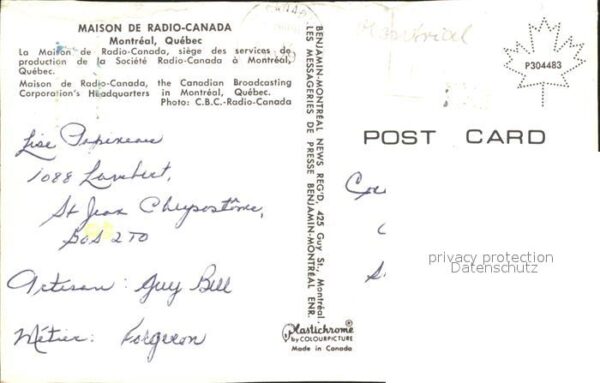 MAISON DE RADIO-CANADA
Montréal, Québec
La Maison de Radio-Canada, siège des services de
production de la Société Radio-Canada à Montréal,
Québec.
Maison de Radio-Canada, the Canadian Broadcasting
Corporation's Headquarters in Montréal, Québec.
Photo: C.B.C.-Radio-Canada
Lise Papineau
1088 Lambert,
St Jean Chrysostôme,
G0S 2T0
Artisan: Guy Bell
Métier: Forgeron
BENJAMIN-MONTREAL NEWS REG'D, 425 Guy St., Montréal.
LES MESSAGERIES DE PRESSE BENJAMIN-MONTRÉAL ENR.
Plastichrome
by COLOURPICTURE
Made in Canada
Montréal
P304483
POST CARD
privacy protection
Datenschutz